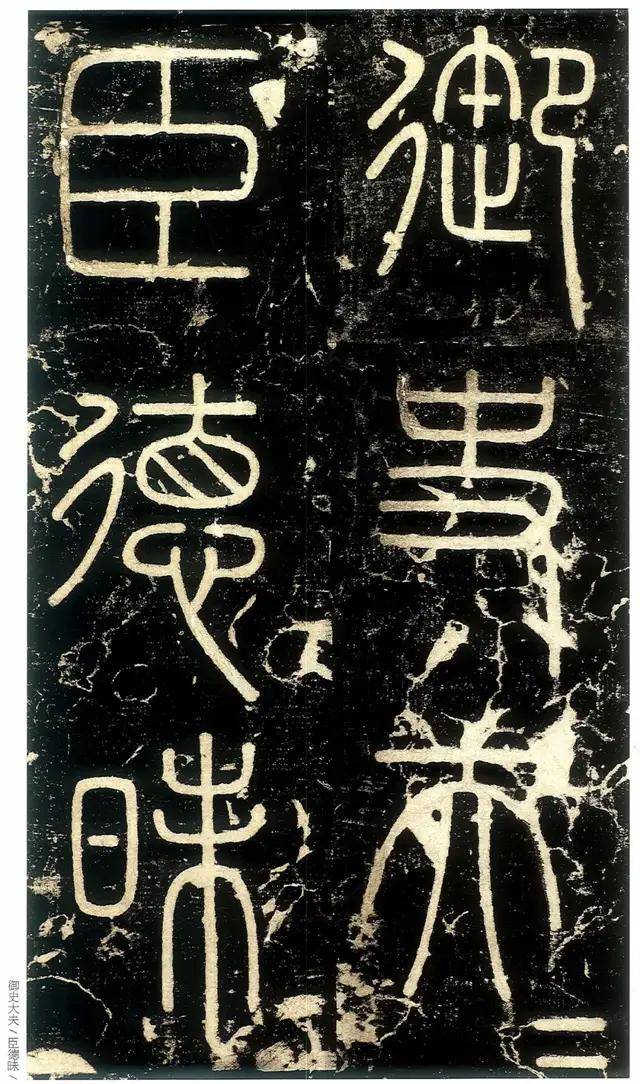 御史夫=
臣德昧
御史大夫/臣德昧/